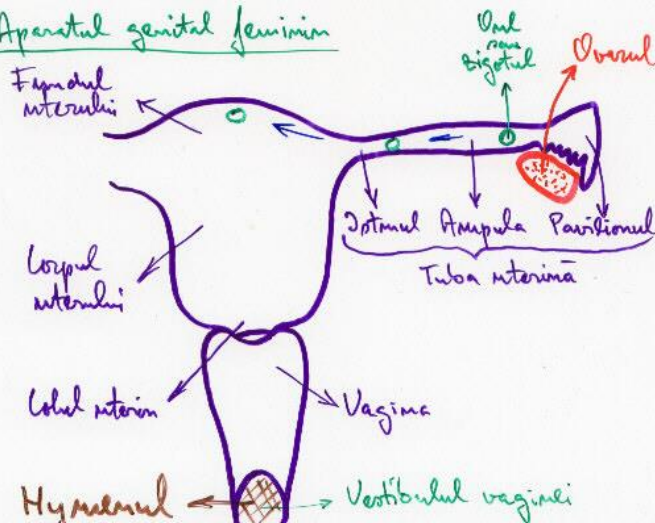 Aparatul genital feminin
Oul
sau
zigotul
Ovarul
Fundul
uterului
Istmul Ampula Pavilionul
Tuba uterină
Corpul
uterului
Colul uterin
Vagina
Hymenul
Vestibulul vaginei